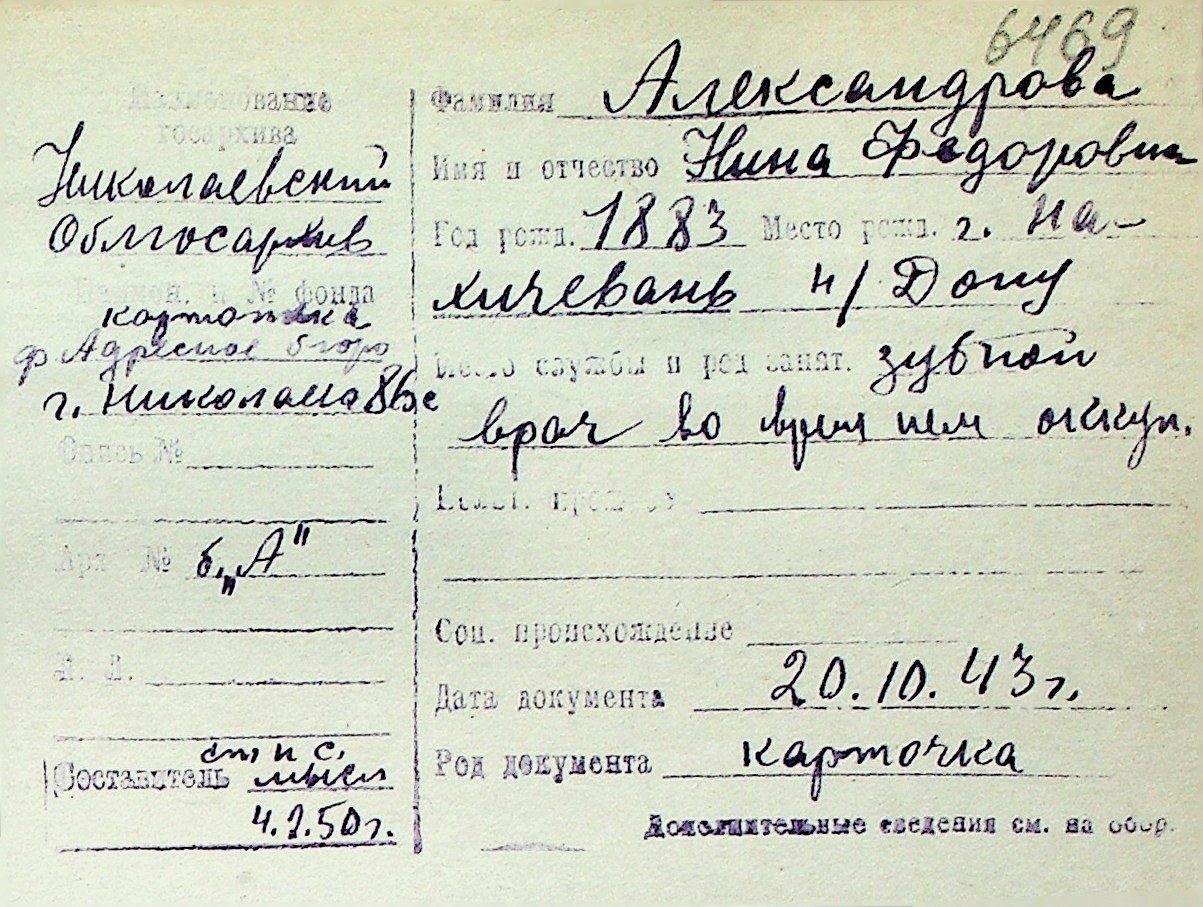 6469
Наименование
госархива
Николаевский
Облгосархив
Наимен. и № фонда
картотека
ф Адресное бюро
г. Николаева
Опись №
Арх №
б. „А"
Л. Л.
ст н с.
Составитель мысл
4.2.50г.
Фамилия Александрова
Имя и отчество Нина Федоровна
Год рожд. 1883 Место рожд. г. На-
хичевань н/Дону
Место службы и род занят. зубной
врач во время нем оккуп.
Соц. происхождение
Дата документа 20.10.43г.
Род документа карточка
Дополнительные сведения см. на обор.